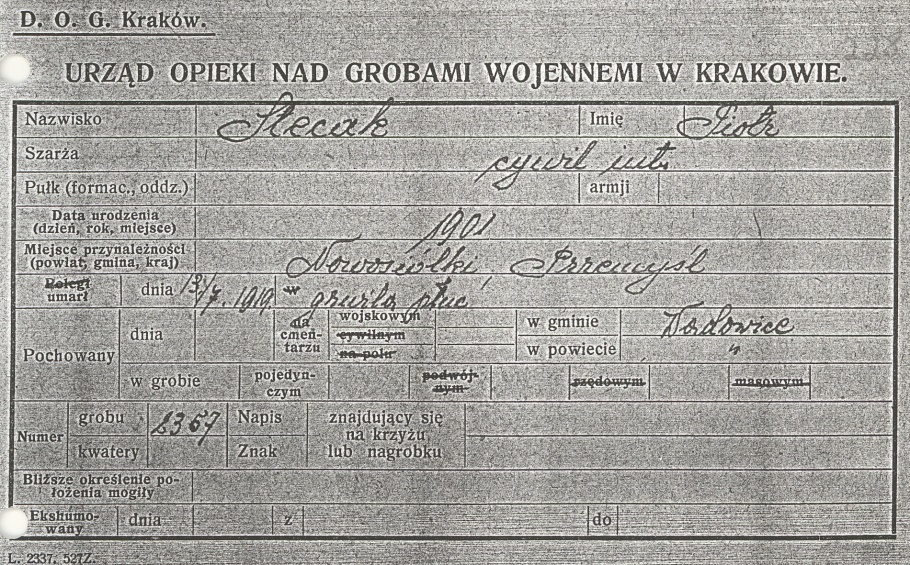 D. O. G. Kraków.
URZĄD OPIEKI NAD GROBAMI WOJENNEMI W KRAKOWIE.
Nazwisko Stecak Imię Piotr
Szarża cywil int.
Pułk (formac., oddz.) armji
Data urodzenia
(dzień, rok, miejsce) 1901
Miejsce przynależności
(powiat, gmina, kraj) Nowosiółki, Przemyśl
Poległ
umarł dnia 13/7. 1919 w gruźla płuc
Pochowany dnia na cmeń-tarzu wojskowym w gminie Wadowice
cywilnym
na polu w powiecie "
w grobie pojedyn-czym podwój-nym rzędowym masowym
Numer grobu 2367 Napis znajdujący się
na krzyżu
kwatery Znak lub nagrobku
Bliższe określenie po-
łożenia mogiły
Ekshumo-
wany dnia z do
L. 2337. 527Z.